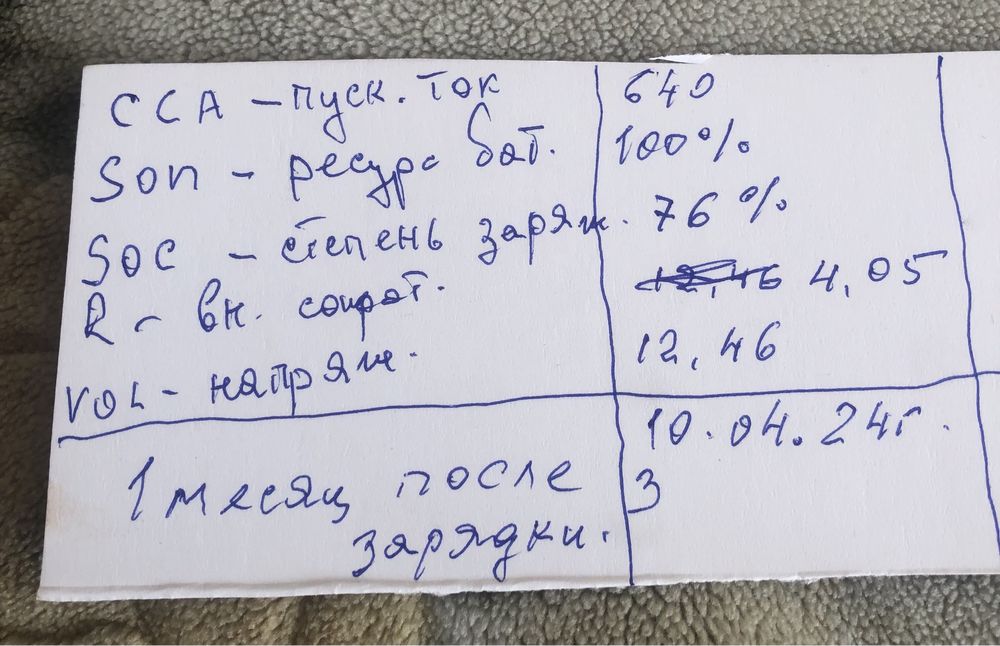 ССА - пуск. ток 640
SOП - ресурс бат. 100%
SOC - степень заряж. 76%
R - вн. сопрот. 4,05
VOL - напряж. 12,46
10.04.24г.
1 месяц после 3
зарядки.